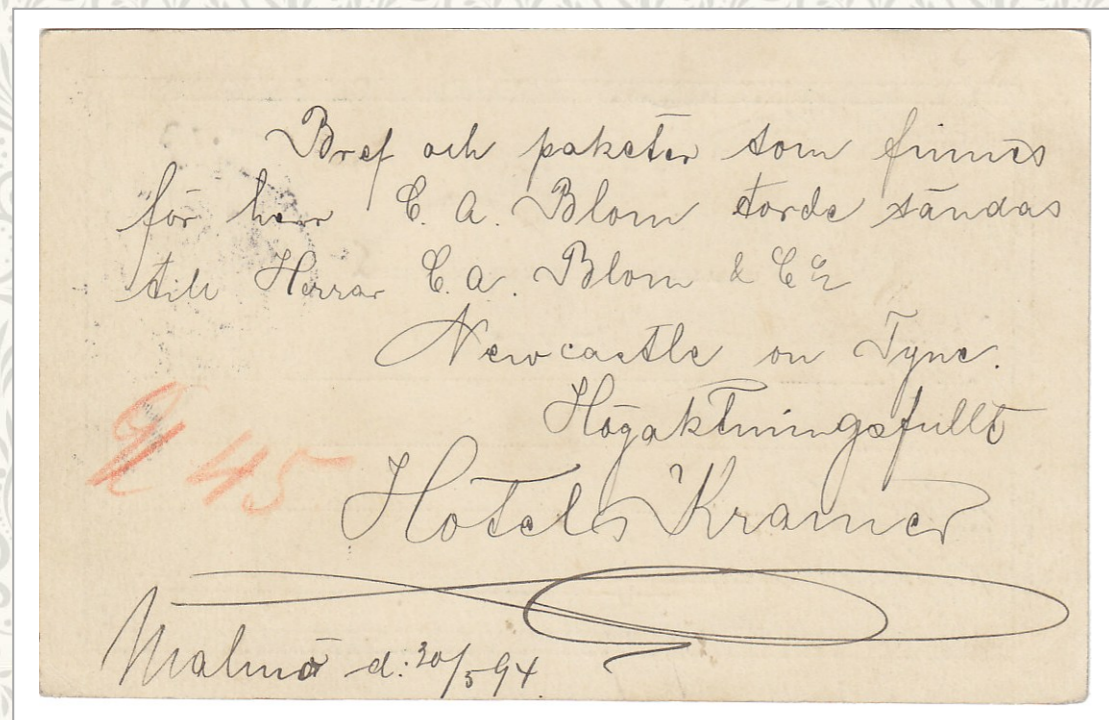 Bref och paketer som finnes
för herr C. A. Blom torde sändas
till Herrar C. A. Blom & Co
Newcastle on Tyne.
Högaktningsfullt
Hotel Kramer
Malmö d. 20/5 94.
45